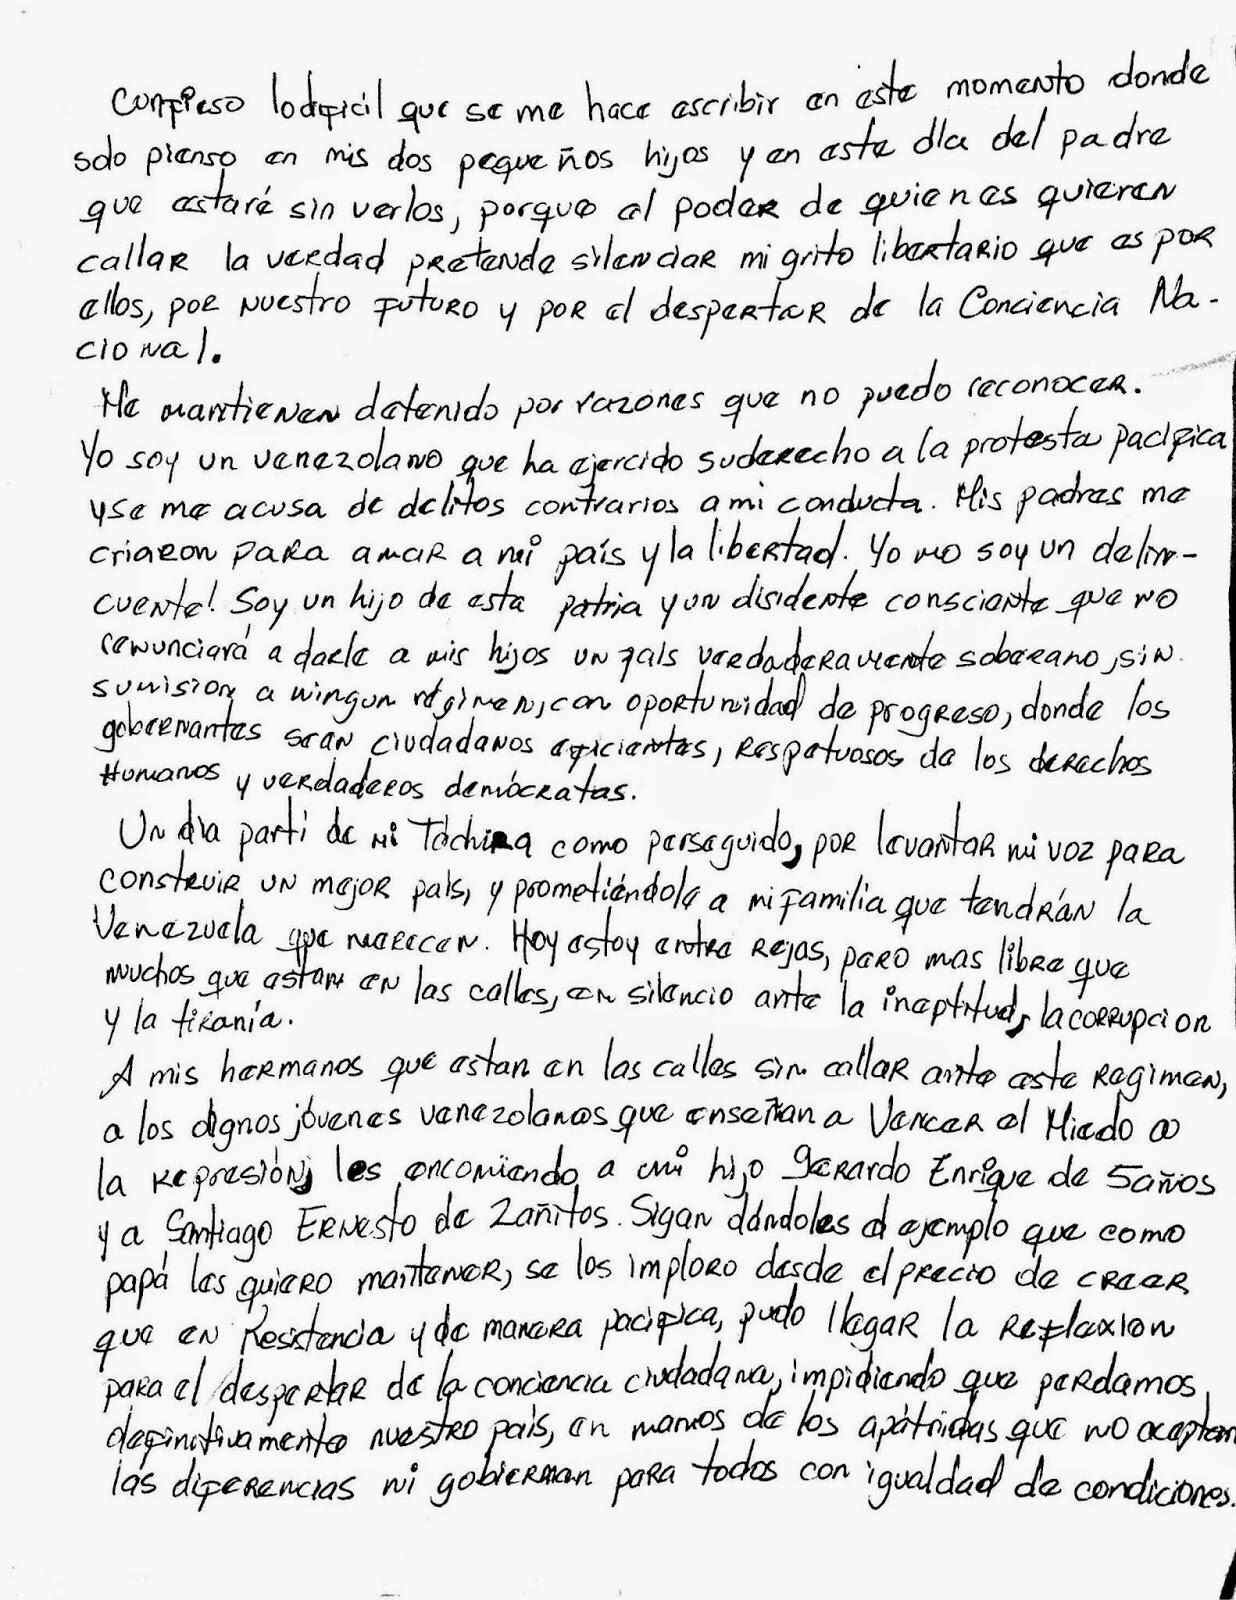 Confieso lo dificil que se me hace escribir en este momento donde
solo pienso en mis dos pequeños hijos y en este día del padre
que estaré sin verlos, porque el poder de quienes quieren
callar la verdad pretende silenciar mi grito libertario que es por
ellos, por nuestro futuro y por el despertar de la Conciencia Na-
cional.
Me mantienen detenido por razones que no puedo reconocer.
Yo soy un venezolano que ha ejercido su derecho a la protesta pacifica
y se me acusa de delitos contrarios a mi conducta. Mis padres me
criaron para amar a mi país y la libertad. Yo no soy un delin-
cuente! Soy un hijo de esta patria y un disidente consciente que no
renunciará a darle a mis hijos un país verdaderamente soberano, sin
sumision a ningun régimen, con oportunidad de progreso, donde los
gobernantes sean ciudadanos eficientes, respetuosos de los derechos
Humanos y verdaderos demócratas.
Un día partí de mi Táchira como perseguido, por levantar mi voz para
construir un mejor país, y prometiéndole a mi familia que tendrán la
Venezuela que merecen. Hoy estoy entre rejas, pero mas libre que
muchos que estan en las calles, en silencio ante la ineptitud, la corrupcion
y la tiranía.
A mis hermanos que estan en las calles sin callar ante este regimen,
a los dignos jóvenes venezolanos que enseñan a Vencer el Miedo a
la represión, les encomiendo a mi hijo Gerardo Enrique de 5 años
y a Santiago Ernesto de 2 añitos. Sigan dándoles el ejemplo que como
papá les quiero mantener, se los imploro desde el precio de creer
que en Resistencia y de manera pacifica, pudo llegar la reflexion
para el despertar de la conciencia ciudadana, impidiendo que perdamos
definitivamente nuestro país, en manos de los apátridas que no aceptan
las diferencias ni gobiernan para todos con igualdad de condiciones.